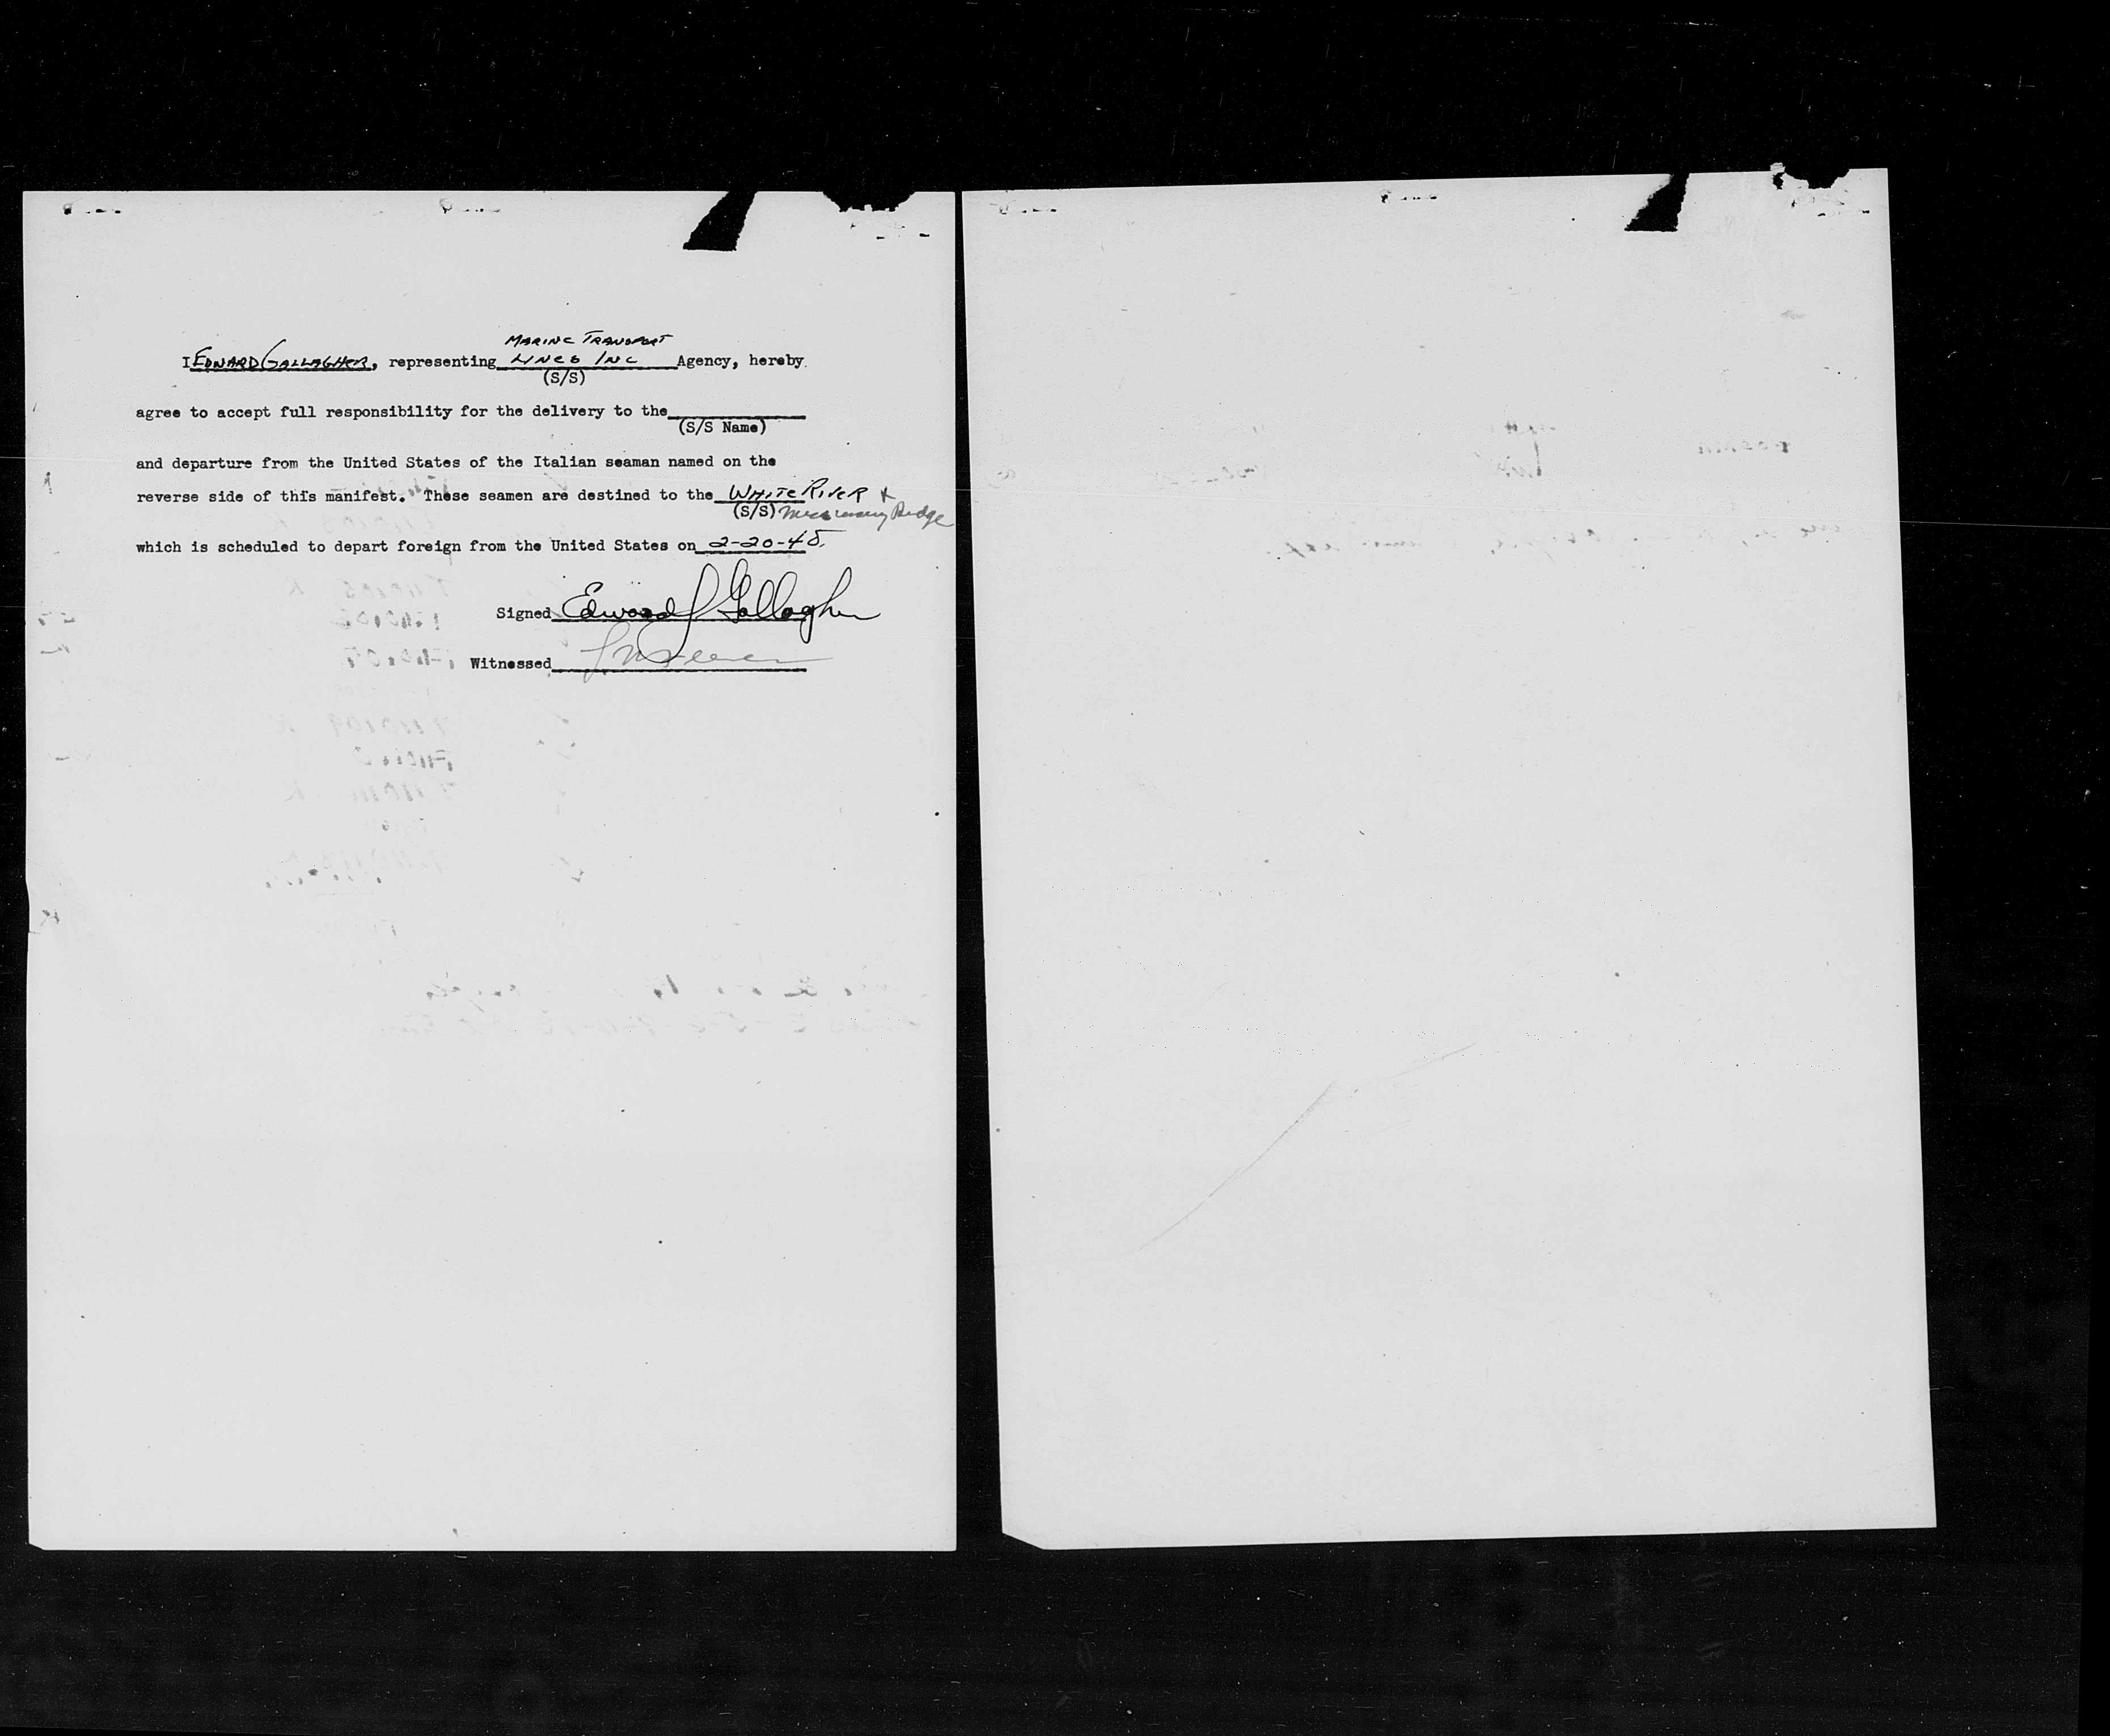 MARINE TRANSPORT
I EDWARD GALLAGHER, representing LINES INC Agency, hereby
(S/S)
agree to accept full responsibility for the delivery to the
(S/S Name)
and departure from the United States of the Italian seaman named on the
reverse side of this manifest. These seamen are destined to the WHITE RIVER &
(S/S) Missionary Ridge
which is scheduled to depart foreign from the United States on 2-20-48.
Signed Edward J Gallagher
Witnessed